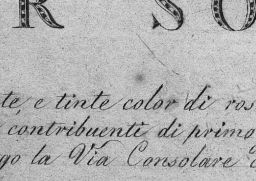 R SO
te, e tinte color di ros
contribuenti di primo
go la Via Consolare